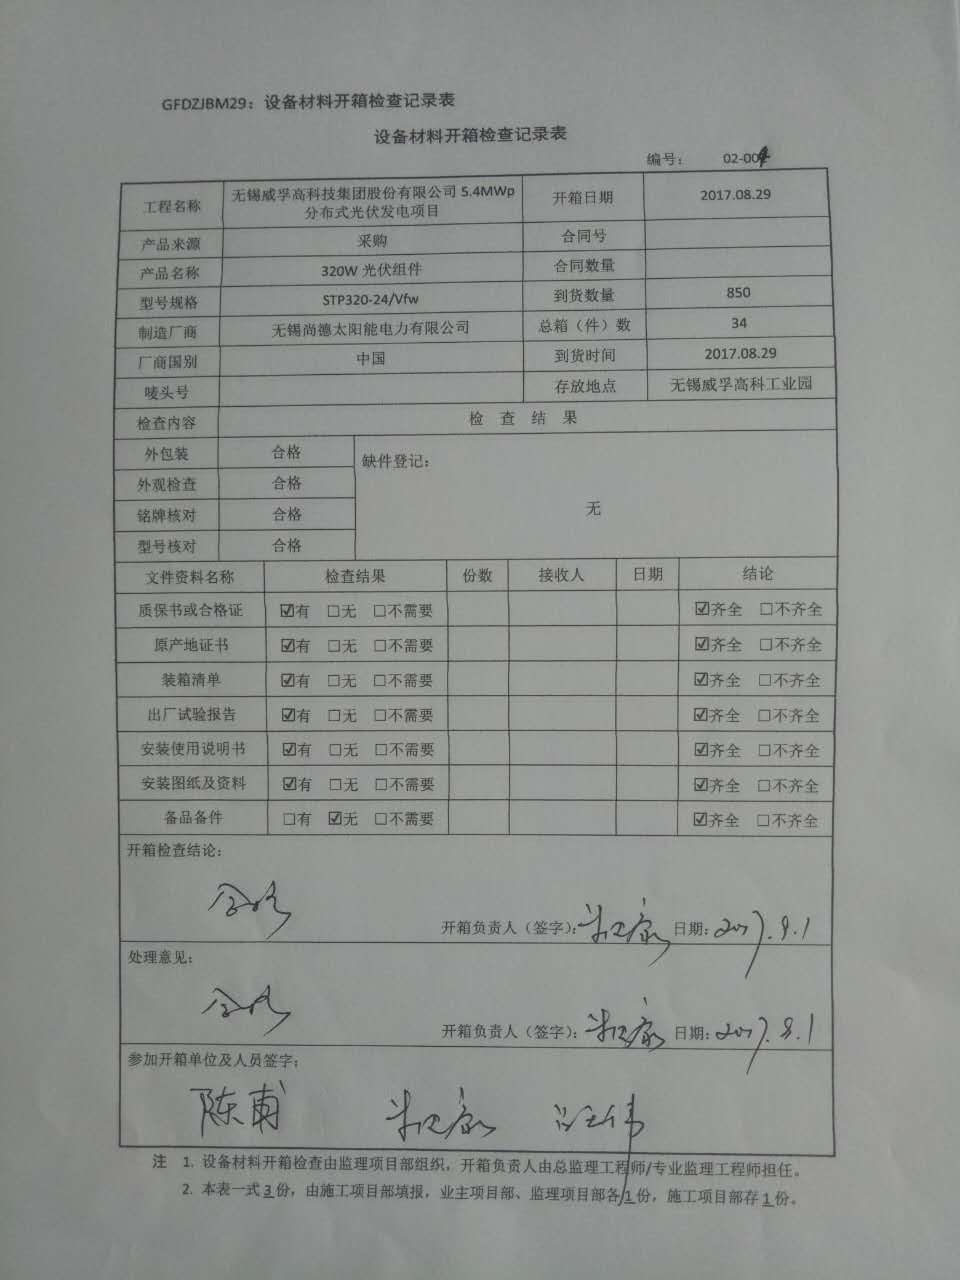 GFDZJBM29：设备材料开箱检查记录表
设备材料开箱检查记录表
编号： 02-004
工程名称 无锡威孚高科技集团股份有限公司 5.4MWp 分布式光伏发电项目 开箱日期 2017.08.29
产品来源 采购 合同号
产品名称 320W 光伏组件 合同数量
型号规格 STP320-24/Vfw 到货数量 850
制造厂商 无锡尚德太阳能电力有限公司 总箱（件）数 34
厂商国别 中国 到货时间 2017.08.29
唛头号 存放地点 无锡威孚高科工业园
检查内容 检 查 结 果
外包装 合格 缺件登记：
外观检查 合格
铭牌核对 合格 无
型号核对 合格
文件资料名称 检查结果 份数 接收人 日期 结论
质保书或合格证 ☑有 □无 □不需要 ☑齐全 □不齐全
原产地证书 ☑有 □无 □不需要 ☑齐全 □不齐全
装箱清单 ☑有 □无 □不需要 ☑齐全 □不齐全
出厂试验报告 ☑有 □无 □不需要 ☑齐全 □不齐全
安装使用说明书 ☑有 □无 □不需要 ☑齐全 □不齐全
安装图纸及资料 ☑有 □无 □不需要 ☑齐全 □不齐全
备品备件 □有 ☑无 □不需要 ☑齐全 □不齐全
开箱检查结论：
合格
开箱负责人（签字）： 日期：2017.9.1
处理意见：
合格
开箱负责人（签字）： 日期：2017.9.1
参加开箱单位及人员签字；
陈甫
注 1. 设备材料开箱检查由监理项目部组织，开箱负责人由总监理工程师/专业监理工程师担任。
2. 本表一式 3 份，由施工项目部填报，业主项目部、监理项目部各 1 份，施工项目部存 1 份。